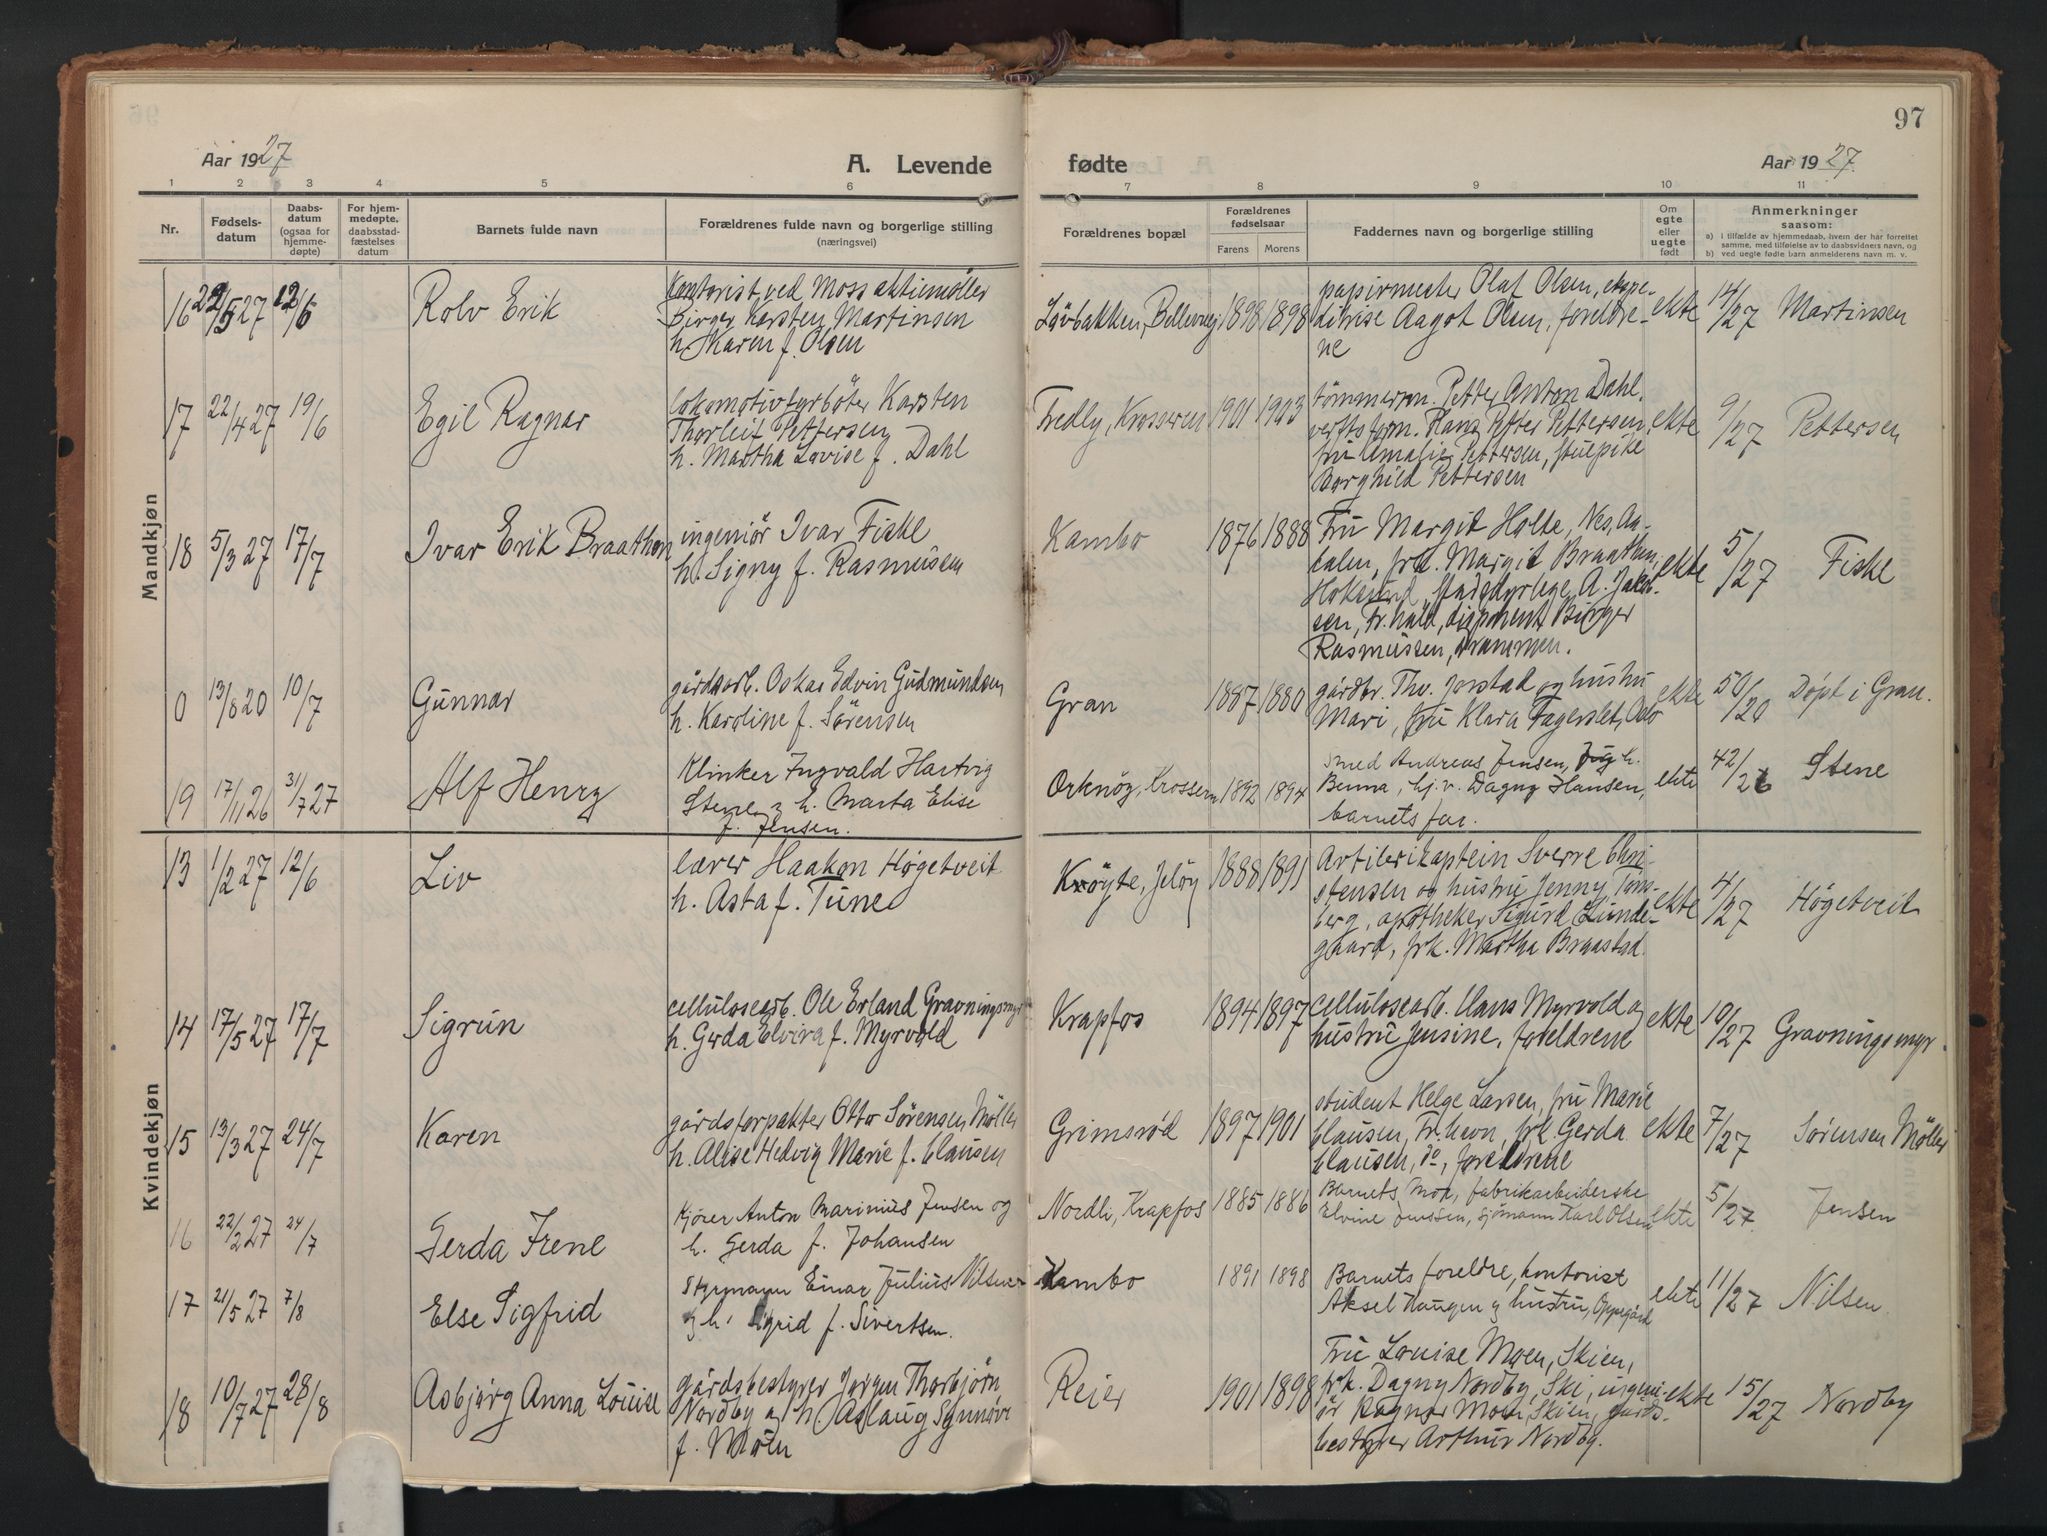 97
Aar 1927
A. Levende
fødte
Aar 1927
1 2 3 4 5 6 7 8 9 10 11
Nr.
Fødsels-
datum
Daabs-
datum
(ogsaa for
hjemme-
døpte)
For hjem-
medøpte,
daabsstad-
fæstelses
datum
Barnets fulde navn
Forældrenes fulde navn og borgerlige stilling
(næringsvei)
Forældrenes bopæl
Forældrenes
fødselsaar
Farens Morens
Faddernes navn og borgerlige stilling
Om
egte
eller
uegte
født
Anmerkninger
saasom:
a) i tilfælde av hjemmedaab, hvem der har forrettet
samme, med tilføielse av to daabsvidners navn, og
b) ved uegte fødte barn anmelderens navn m. v.
Mandkjøn
16 22/5 27 12/6 Rolv Erik
Kontorist ved Moss aktiemøller
Birger Karsten Martinsen
h. Karen f. Olsen
Løvbakken, Bellevuey 1898 1898
papirmester Olaf Olsen, ekspe-
ditrise Aagot Olsen, foreldre-
ne
ekte 14/27 Martinsen
17 22/4 27 19/6 Egil Ragnar
lokomotivfyrbøter Karsten
Thorleif Pettersen
h. Martha Lovise f. Dahl
Fredly, Krosseren 1901 1903
tömmerm. Petter Anton Dahl,
verftsform. Hans Petter Pettersen,
fru Amalie Pettersen, stuepike
Borghild Pettersen
ekte 9/27 Pettersen
18 5/3 27 17/7 Ivar Erik Braathen
ingeniör Ivar Fiske
h. Signy f. Rasmussen
Kambo 1876 1888
Fru Margit Holte, Nes, Aa-
dalen, frk. Margit Braathen,
Hoksund, stadsdyrlege A. Jakob-
sen, Fr.hald, disponent Birger
Rasmussen, Drammen.
ekte 5/27 Fiske
0 13/8 20 10/7 Gunnar
gårdsarb. Oskar Edvin Gudmundsen
h. Karoline f. Sörensen
Gran 1887 1880
gårdbr. Thv. Jorstad og hustru
Mari, fru Klara Fagerslet, Oslo
ekte 50/20 Döpt i Gran.
19 17/11 26 31/7 27 Alf Henry
Klinker Ingvald Hartvig
Stene & h. Marta Elise
f. Jensen.
Orknöy, Krossern 1892 1894
smed Andreas Jensen, h.
Benna, hj.v. Dagny Hansen,
barnets far.
ekte 42/26 Stene
Kvindekjøn
13 1/2 27 12/6 Liv
lærer Haakon Høgetveit
h. Asta f. Tune
Krøyte, Jeløy 1888 1891
Artillerikaptein Sverre Chri-
stensen og hustru Jenny, Töns-
berg, apotheker Sigurd Lunde-
gaard, frk. Martha Braastad.
ekte 4/27 Høgetveit
14 17/5 27 17/7 Sigrun
cellulosearb. Ole Erland Gravningsmyr
h. Gerda Elvira f. Myrvold
Krapfos 1894 1897
cellulosearb. Hans Myrvold og
hustru Jensine, foreldrene
ekte 10/27 Gravningsmyr.
15 13/3 27 24/7 Karen
gårdsforpakter Otto Sörensen Möller
h. Alise Hedvig Marie f. Clausen
Grimsrød 1897 1901
student Helge Larsen, fru Marie
Clausen, Fr.havn, frk. Gerda
Clausen, do, foreldrene
ekte 7/27 Sørensen Møller
16 22/2 27 24/7 Gerda Irene
Kjører Anton Marinius Jensen og
h. Gerda f. Johansen
Nordli, Krapfos 1885 1886
Barnets Mor, fabrikarbeiderske
Elvine Jenssen, sjömann Karl Olsen
ekte 5/27 Jensen
17 21/5 27 7/8 Else Sigfrid
Styrmann Einar Julius Nilsen
og h. Sigrid f. Sivertsen.
Kambo 1891 1898
Barnets foreldre, kontorist
Aksel Haugen og hustru, Oppegård
ekte 11/27 Nilsen.
18 10/7 27 28/8 Asbjørg Anna Louise
gårdsbestyrer Jørgen Thorbjørn
Nordby og h. Aslaug Synnöve
f. Moen
Reier 1901 1898
Fru Louise Moen, Skien,
frk. Dagny Nordby, Ski, ingeni-
ör Ragnar Moen, Skien, gårds-
bestyrer Arthur Nordby.
ekte 15/27 Nordby